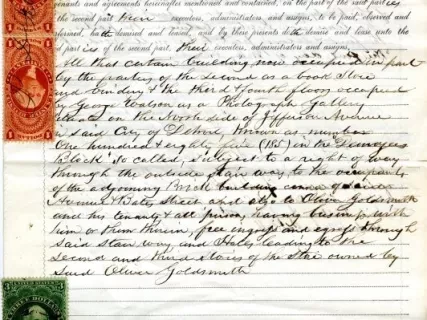 tenants and agreements hereinafter mentioned and contained, on the part of the said parties
the second part their executors, administrators and assigns, to be paid, observed and
formed, hath demised and leased, and by these presents doth demise and lease unto the
parties of the second part, their executors, administrators and assigns.
All that certain building now occupied in part
by the parties of the second as a book Store
and bindery & the third & fourth floors occupied
by George Watson as a Photograph Gallery
situate on the North side of Jefferson Avenue
in said City of Detroit, Known as number
One hundred & eighty five (185) in the
Block so called, Subject to a right of way
through the outside stair way to the occupants
of the adjoining Brick building corner of
Avenue & Bates Street and also to Oliver Goldsmith
and his tenants & all persons having business with
him or them therein, free ingress and egress through
said Stair way, and Halls leading to the
Second and third stories of the Store owned by
Said Oliver Goldsmith
UNITED STATES